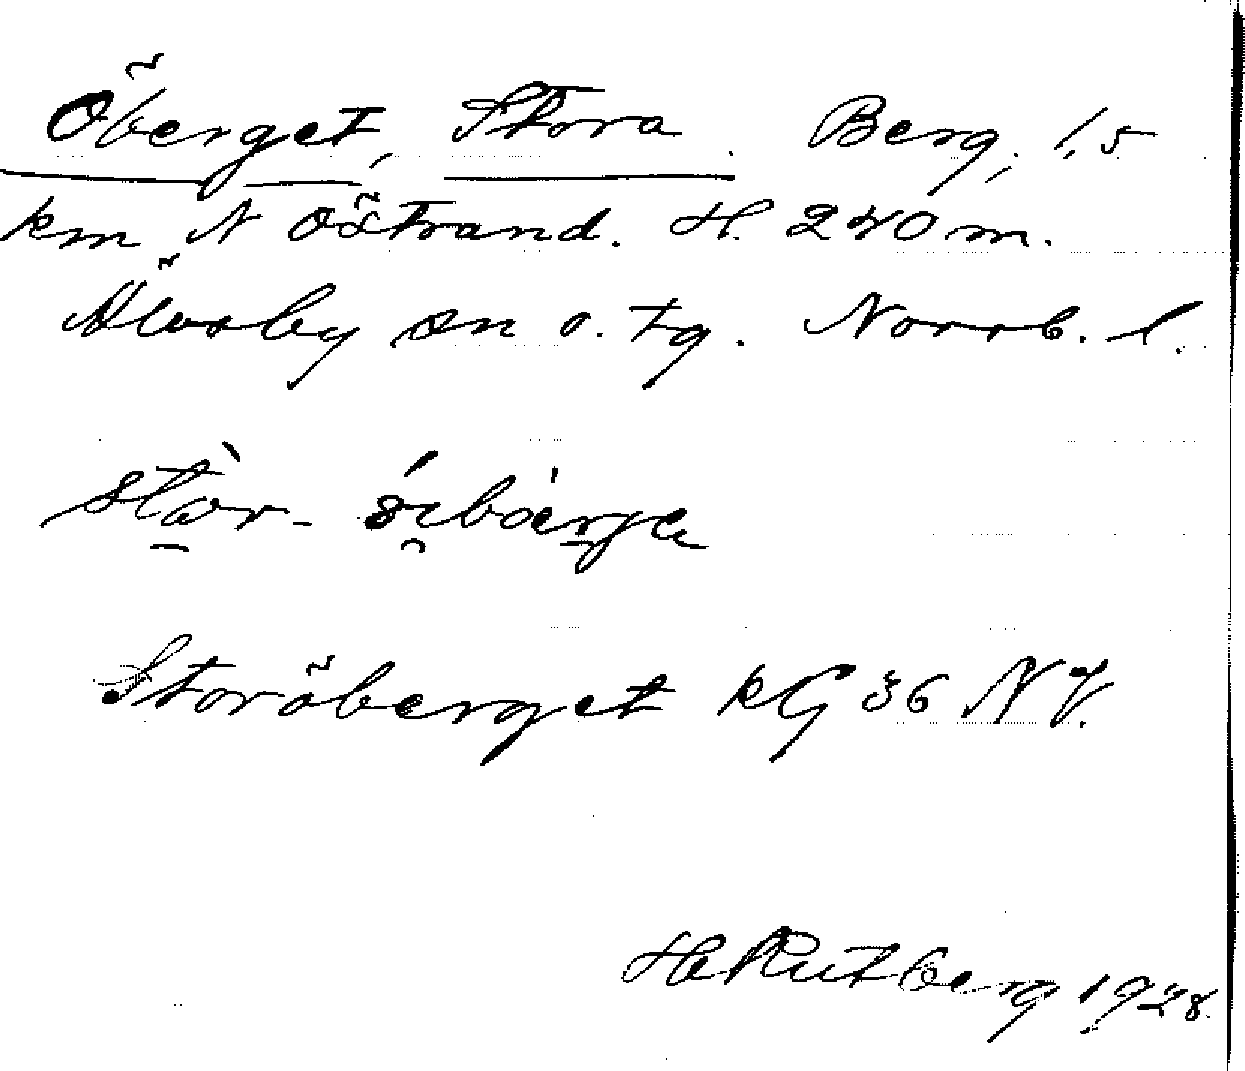 Öberget, Stora. Berg, 1,5
km N Östrand. H. 240 m.
Älvsby sn o. tg. Norrb. l.
Storöberget kG 36 NV.
H Rutberg 1928.